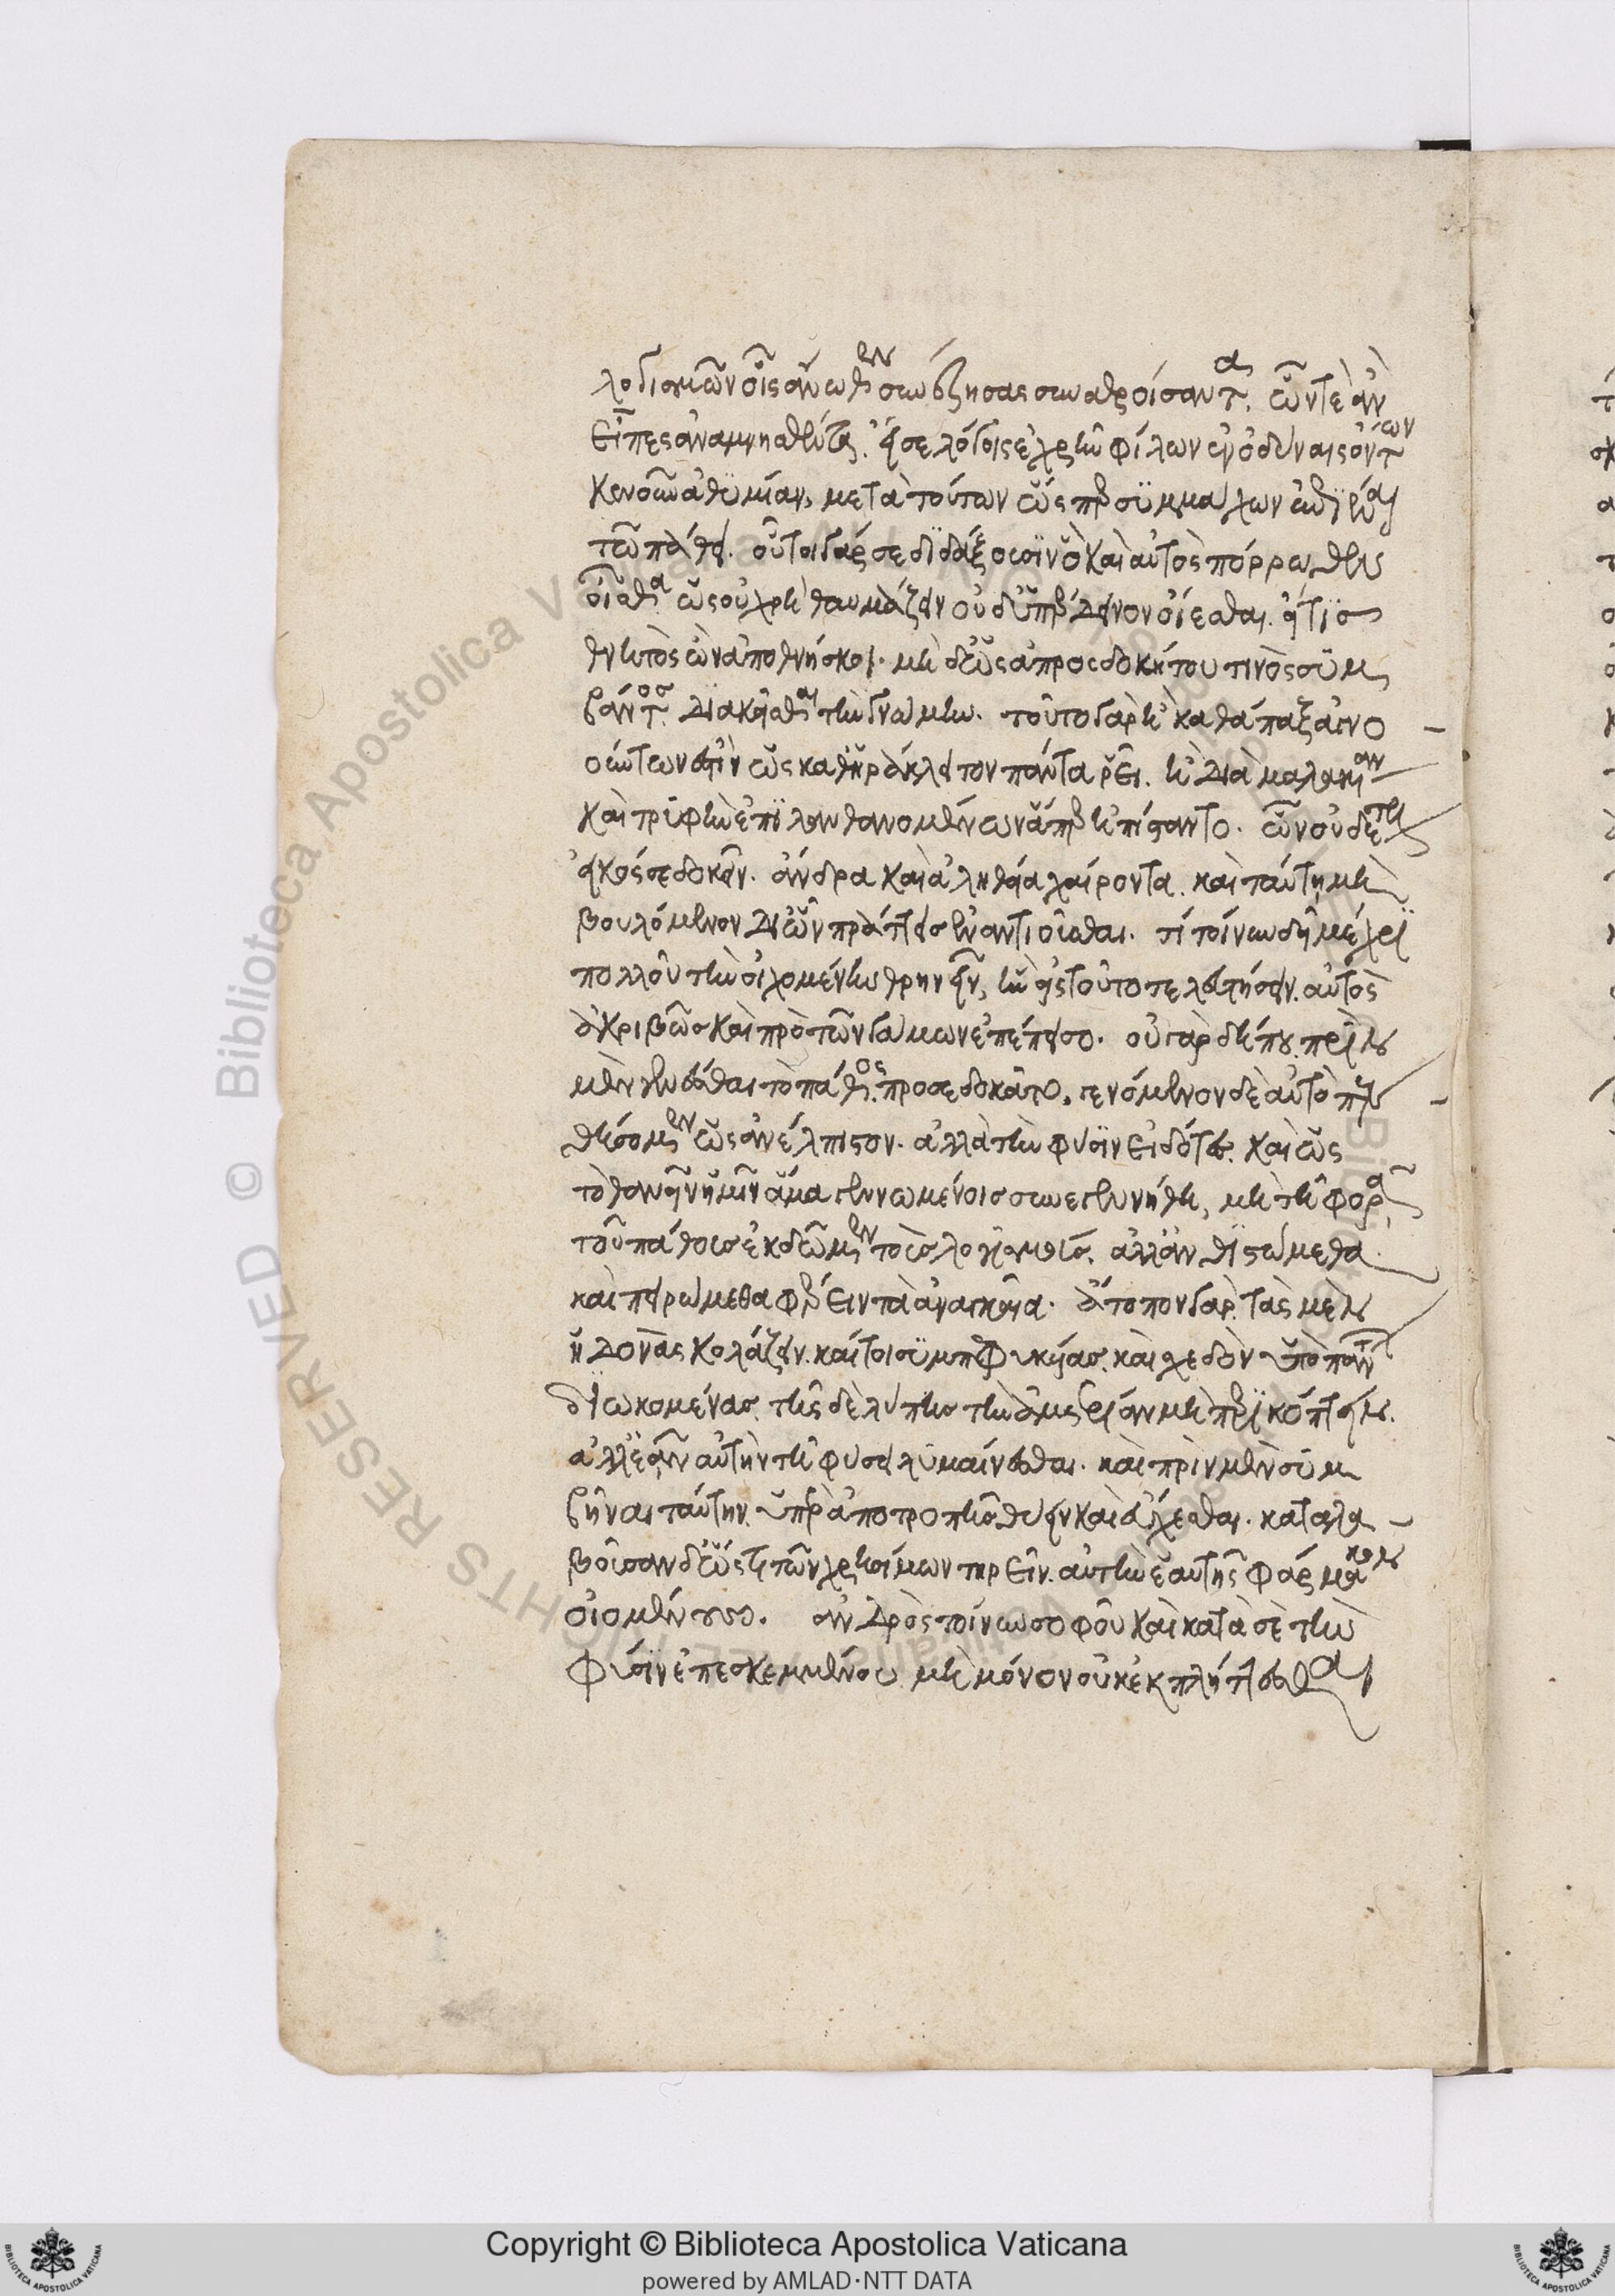 λογισμῶν οἷς ἄνωθεν συνέζησας συναθροίσαντα, ὧν τε ἂν
εἶπες ἀναμνησθέντα, εἴ σε λόγοις ἐχρῆν φίλων ἐν ὀδύναις ὄντων
κενοῦν ἀθυμίαν, μετὰ τούτων ὡς περ συμμάχων
τῷ πάθει. οὗτοι γάρ σε διδάξουσιν ὃ καὶ αὐτὸς πόρρωθεν
οἶσθα, ὡς οὐ χρὴ θαυμάζειν οὐδ' ὑπέρδεινον οἴεσθαι. εἴ τις
θνητὸς ὢν ἀποθνήσκοι. μὴ δ' ὡς ἀπροσδοκήτου τινὸς συμ
βάντος διακεῖσθαι τὴν γνώμην. τοῦτο γὰρ ἢ καθάπαξ ἀγνο
ούντων ἐστὶν ὡς καθ' Ἡράκλειτον πάντα ῥεῖ. ἢ διὰ μαλακίαν
καὶ τρυφὴν ἐπιλανθανομένων ἅπερ ἠπίσταντο. ὧν οὐδέτερον
εἰκός σε δοκεῖν. ἄνδρα καὶ ἀληθείᾳ χαίροντα. καὶ ταύτῃ μὴ
βουλόμενον δι' ὧν πράττεις ἐναντιοῦσθαι. τί τοίνυν δεῖ μέχρι
πολλοῦ τὴν οἰχομένην θρηνεῖν, ἣν εἰς τοῦτο τελευτήσειν. αὐτὸς
ἀκριβῶς καὶ πρὸ τῶν γάμων ἐπέπειστο. οὐ γὰρ δήπου πρὶν
μὲν γενέσθαι τὸ πάθος προσεδοκᾶτο, γενόμενον δὲ αὐτὸ
θήσομεν ὡς ἀνέλπιστον. ἀλλὰ τὴν φύσιν εἰδότες. καὶ ὡς
τὸ θανεῖν ἡμῖν ἅμα γεννωμένοις συνεγεννήθη, μὴ τῇ φορᾷ
τοῦ πάθους ἐκδῶμεν τοὺς λογισμούς. ἀλλ' ἀνθιστώμεθα
καὶ πειρώμεθα φέρειν τὰ ἀναγκαῖα. ἄτοπον γὰρ τὰς μὲν
ἡδονὰς κολάζειν. καίτοι συμπεφυκυίας. καὶ σχεδὸν ὑπὸ πάντων
διωκομένας. τῆς δὲ λύπης τὴν ἀμετρίαν μὴ περικόπτειν.
ἀλλ' ἐᾶν αὐτὴν τῇ φύσει λυμαίνεσθαι. καὶ πρὶν μὲν συμ
βῆναι ταύτην. ὑπὲρ ἀποτροπῆς θύειν καὶ εὔχεσθαι. καταλα
βοῦσαν δ' ὥς τι τῶν χρησίμων τηρεῖν. αὐτὴν ἑαυτῆς φάρμακον
οἰομένους. ἀνδρὸς τοίνυν σοφοῦ καὶ κατὰ σὲ τὴν
φύσιν ἐπεσκεμμένου μὴ μόνον οὐκ ἐκπλήττεσθαι